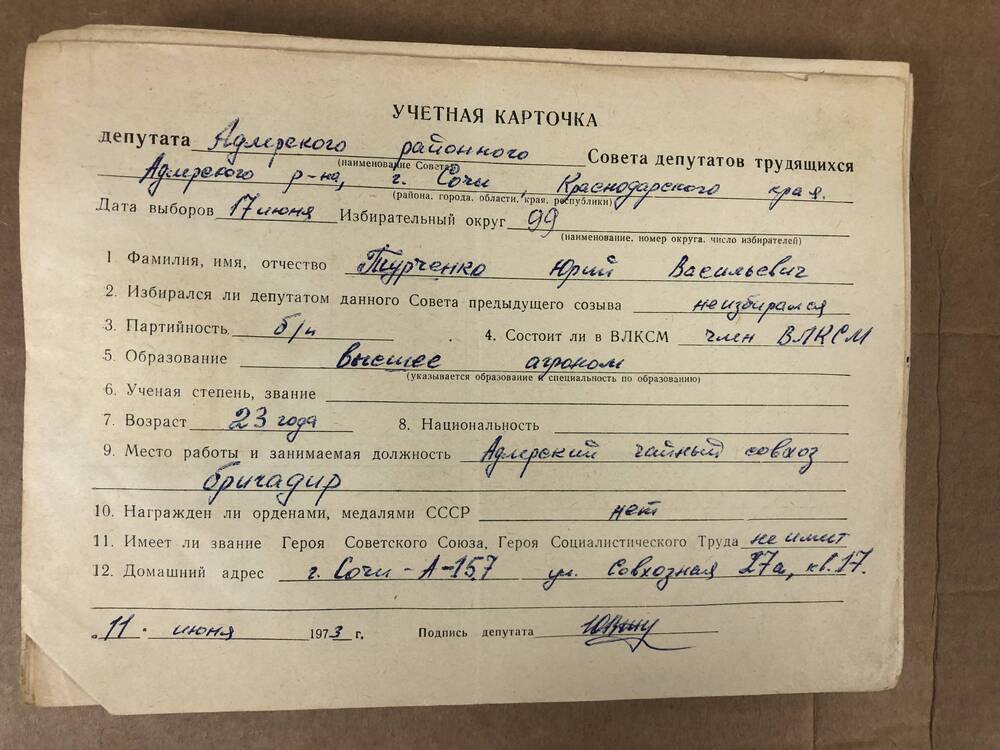 УЧЕТНАЯ КАРТОЧКА
депутата Адлерского районного Совета депутатов трудящихся
(наименование Совета)
Адлерского р-на, г. Сочи, Краснодарского края.
(района, города, области, края, республики)
Дата выборов 17 июня Избирательный округ 99
(наименование, номер округа, число избирателей)
1 Фамилия, имя, отчество Турченко Юрий Васильевич
2. Избирался ли депутатом данного Совета предыдущего созыва неизбирался
3. Партийность б/п 4. Состоит ли в ВЛКСМ член ВЛКСМ
5. Образование высшее агроном
(указывается образование и специальность по образованию)
6. Ученая степень, звание
7. Возраст 23 года 8. Национальность
9. Место работы и занимаемая должность Адлерский чайный совхоз
бригадир
10. Награжден ли орденами, медалями СССР нет
11. Имеет ли звание Героя Советского Союза, Героя Социалистического Труда не имит
12. Домашний адрес г. Сочи-А-157 ул. Совхозная 27а, кв.17.
„11" июня 1973 г. Подпись депутата